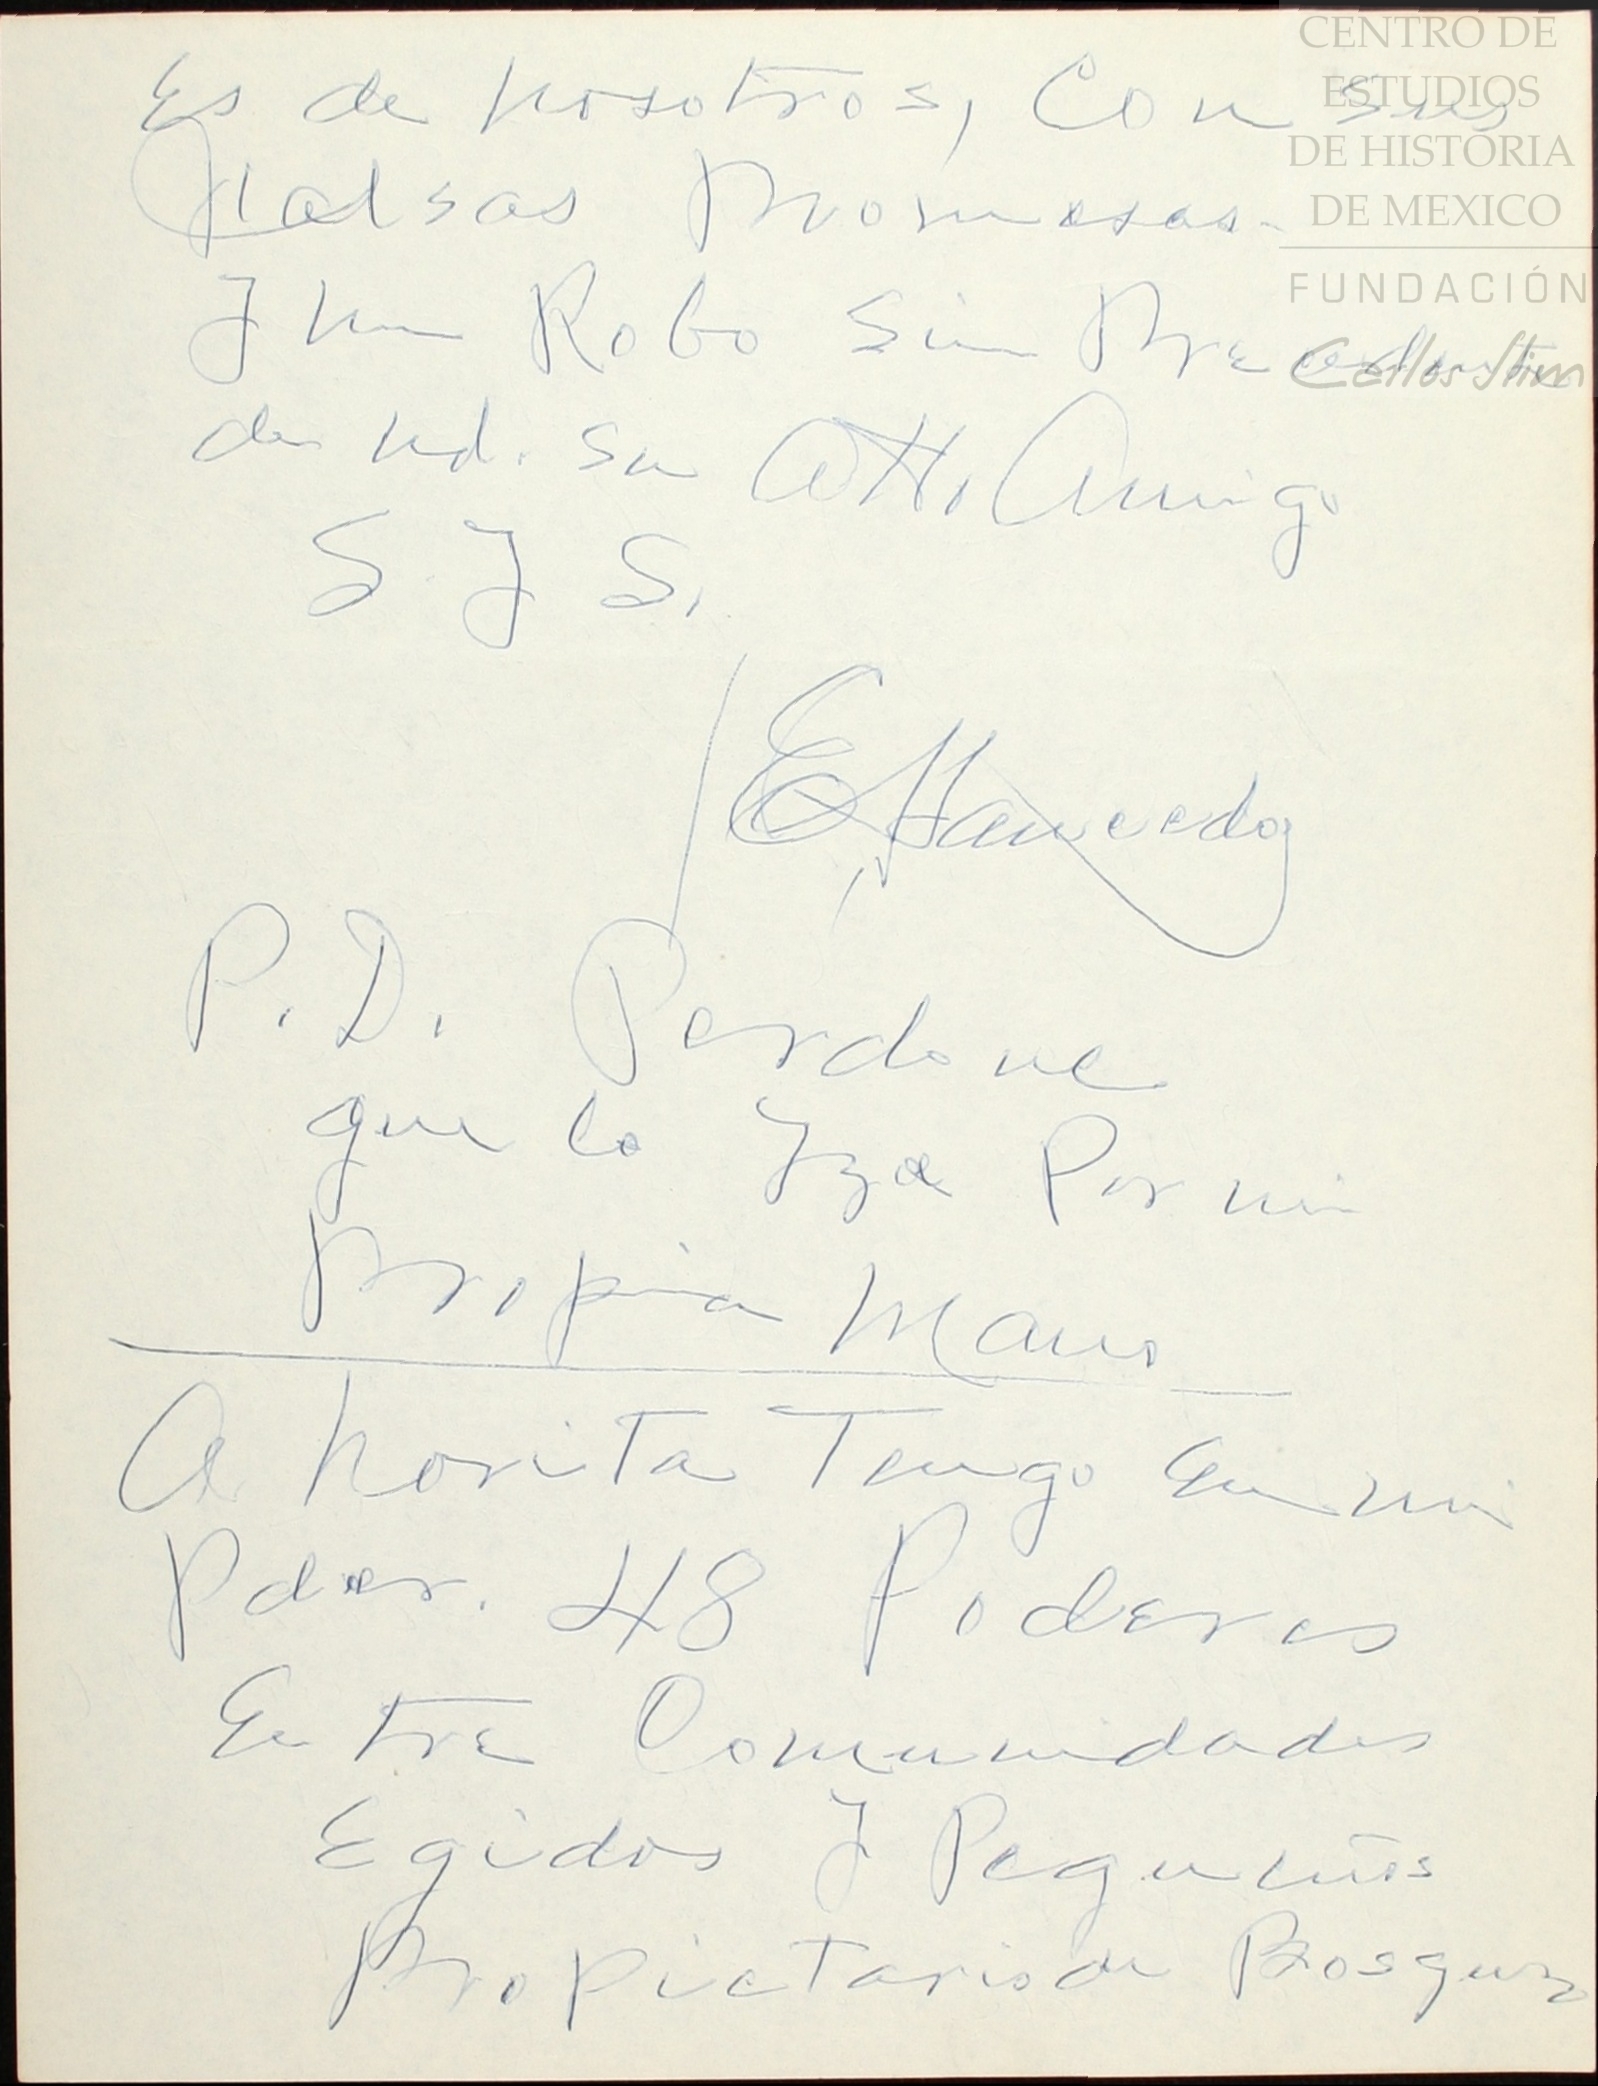 CENTRO DE
ESTUDIOS
DE HISTORIA
DE MEXICO
FUNDACIÓN
Carlos Slim
Es de nosotros, Con sus
Falsas Promesas.
Y un Robo Sin Precedente
de ud. su Atto. Amigo
S. Y S.
P. D. Perdone
que lo Yze Por mi
Propia Mano
A horita Tengo En mi
Pder. 48 Poderes
Entre Comunidades
Egidos Y Pequeños
Propietarios de Bosques